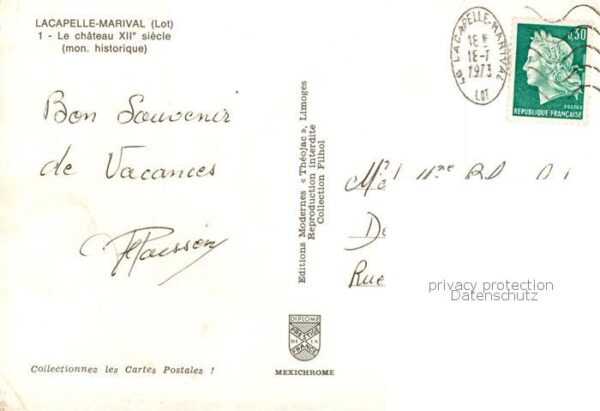 LACAPELLE-MARIVAL (Lot)
1 - Le château XIIᵉ siècle
(mon. historique)
Bon Souvenir
de Vacances
Editions Modernes « Théojac », Limoges
Reproduction interdite
Collection Filhol
DIPLOME
PRESTIGE
DE LA
FRANCE
MEXICHROME
Collectionnez les Cartes Postales !
LACAPELLE-MARIVAL
18 H
18-7
1973
LOT
0,30
POSTES
REPUBLIQUE FRANÇAISE
Rue
privacy protection
Datenschutz